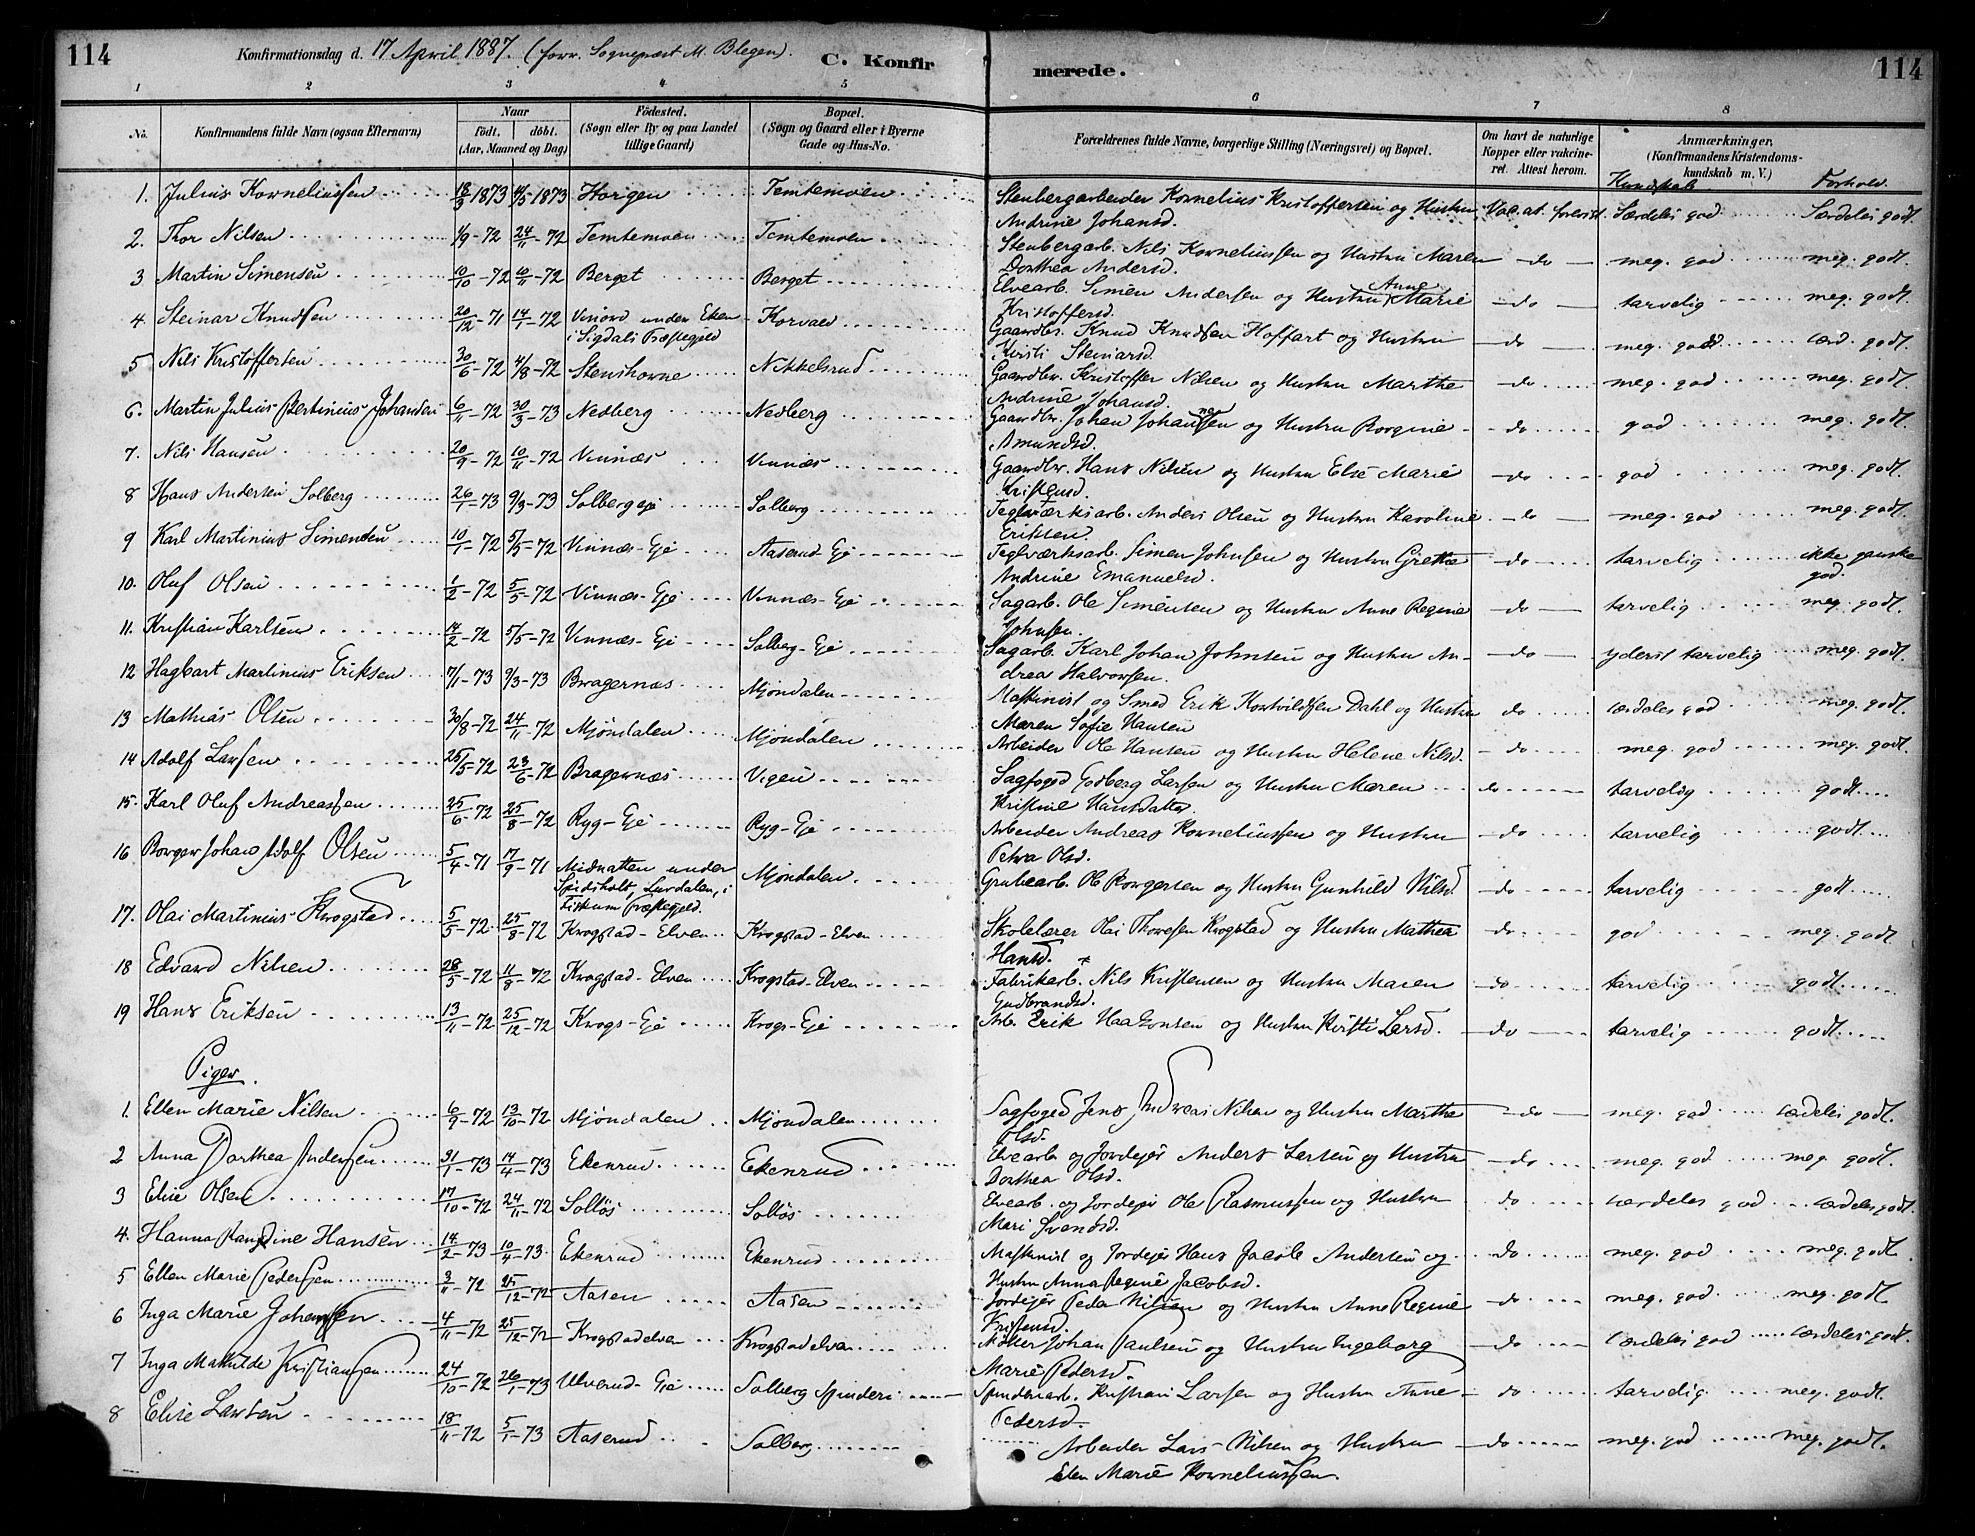 114 Konfirmationsdag d. 17 April 1887. (forr. Sognepræst M. Blegen). C. Konfirmerede. 114
1 2 3 4 5 6 7 8
No. Konfirmandens fulde Navn (ogsaa Efternavn) Naar født. døbt. (Aar, Maaned og Dag) Fødested. (Sogn eller By og paa Landet tillige Gaard) Bopæl. (Sogn og Gaard eller i Byerne Gade og Hus-No. Forældrenes fulde Navne, borgerlige Stilling (Næringsvei) og Bopæl. Om havt de naturlige Kopper eller vakcineret. Attest herom. Anmærkninger. (Konfirmandens Kristendomskundskab m. V.)
Kundskab Forhold.
1. Julius Korneliussen 18/3 1873 4/5 1873 Horgen Temtemoen Stenbergarbeider Kornelius Kristoffersen og Hustru Andrine Johansd. Vac. at. forevist Særdeles god Særdeles godt.
2. Thor Nilsen 1/9-72 24/11-72 Temtemoen Temtemoen Stenbergarb. Nils Korneliussen og Hustru Maren Dorthea Andersd. do meg. god meg. godt.
3 Martin Simensen 10/10-72 10/11-72 Berget Berget Elvearb. Simen Andersen og Hustru Anne Marie Kristoffersd. do tarvelig meg. godt.
4. Steinar Knudsen 20/12-71 14/1-72 under Eken i Sigdals Præstegjeld Korvald Gaardbr. Knud Knudsen Hoffart og Hustru Kirsti Steinarsd. do meg. god særd. godt.
5 Nils Kristoffersen 30/6-72 4/8-72 Stenshorne Nikkelsrud Gaardbr. Kristoffer Nilsen og Hustru Marthe Andrine Johansd. do meg. god meg. godt.
6. Martin Julius Bertinius Johansen 6/11-72 30/3-73 Nedberg Nedberg Gaardbr. Johan Johannesen og Hustru Borgine Amundsd. do god meg. godt.
7. Nils Hansen 20/9-72 10/11-72 Vinnæs Vinnæs Gaardbr. Hans Nilsen og Hustru Else Marie Kristensd. do god meg. godt.
8 Hans Andersen Solberg 26/1-73 9/3-73 Solbergeje Solberg Teglværksarb. Anders Olsen og Hustru Karoline Eriksen do meg. god meg. godt.
9 Karl Martinius Simensen 10/1-72 5/5-72 Vinnæs-Eje Aaserud-Eje Teglværksarb. Simen Johnsen og Hustru Grethe Andrine Emanuelsd. do tarvelig ikke ganske god.
10. Oluf Olsen 1/2-72 5/5-72 Vinnæs-Eje Vinnæs-Eje Sagarb. Ole Simensen og Hustru Anne Regine Johnsen. do tarvelig meg. godt.
11. Kristian Karlsen 14/2-72 5/5-72 Vinnæs-Eje Solberg-Eje Sagarb. Karl Johan Johnsen og Hustru Andrea Halvorsen. do yderst tarvelig meg. godt.
12 Hagbart Martinius Eriksen 7/1-73 9/3-73 Bragernæs Mjøndalen Maskinist og Smed Erik Dahl og Hustru Maren Sofie Hansen do særdeles god meg. godt.
13 Mathias Olsen 30/8-72 24/11-72 Mjøndalen Mjøndalen Arbeider Ole Hansen og Hustru Helene Nilsd. do meg. god meg. godt.
14 Adolf Larsen 25/5-72 23/6-72 Bragernæs Vigen Sagfoged Godberg Larsen og Hustru Maren Kristine Hansdatter do tarvelig godt
15. Karl Oluf Andreassen 25/6-72 25/8-72 Ryg-Eje Ryg-Eje Arbeider Andreas Korneliussen og Hustru Petra Olsd. do tarvelig godt
16 Borger Johan Adolf Olsen 5/4-71 17/9-71 Midnatten under Lurdalen, i Fiskum Præstegjeld. Mjøndalen Grubearb. Ole Borgersen og Hustru Gunhild Nilsd. do tarvelig godt
17. Olai Martinius Krogstad 5/5-72 25/8-72 Krogstad-Elven Krogstad-Elven Skolelærer Olai Thoresen Krogstad og Hustru Mathea Hansd. do god meg. godt
18 Edvard Nilsen 28/5-72 11/8-72 Krogstad-Elven Krogstad-Elven Fabrikarb. Nils Kristensen og Hustru Maren Gudbrandsd. do tarvelig godt
19 Hans Eriksen 13/11-72 25/12-72 Krogs-Eje Krogs-Eje Arb. Erik Haagensen og Hustru Kirsti Larsd. do tarvelig godt
Piger.
1. Ellen Marie Nilsen 6/9-72 13/10-72 Mjøndalen Mjøndalen Sagfoged Jens Andreas Nilsen og Hustru Marthe Olsd. do meg. god særdeles godt.
2 Anna Dorthea Andersen 31/1-73 14/4-73 Ekenrud Ekenrud Elvearb. og Jordejer Anders Larsen og Hustru Dorthea Olsd. do meg. god meg. godt.
3 Elise Olsen 17/10-72 24/11-72 Solløs Solløs Elvearb. og Jordejer Ole Rasmussen og Hustru Mari Svendsd. do særdeles god særdeles godt.
4. Hanna Randine Hansen 14/2-73 10/4-73 Ekenrud Ekenrud Maskinist og Jordejer Hans Jacob Andersen og Hustru Anna Regine Jacobsd. do meg. god meg. godt
5 Ellen Marie Pedersen 3/11-72 25/12-72 Aasen Aasen Jordejer Peder Nilsen og Hustru Anne Regine Kristensd. do meg. god meg. godt
6 Inga Marie Johansen 4/11-72 25/12-72 Krogstadelven Krogstadelven Møller Johan Paulsen og Hustru Ingeborg Marie Pedersd. do særdeles god særdeles godt.
7 Inga Mathilde Kristiansen 24/10-72 26/1-73 Ulverud-Eje Solberg Spinderi Spinderiarb. Kristian Larsen og Hustru Anne Pedersd. do tarvelig meg. godt.
8 Elise Larsen 18/11-72 5/1-73 Aaserud Solberg Arbeider Lars Nilsen og Hustru Elen Marie Korneliussen. do meg. god meg. godt.